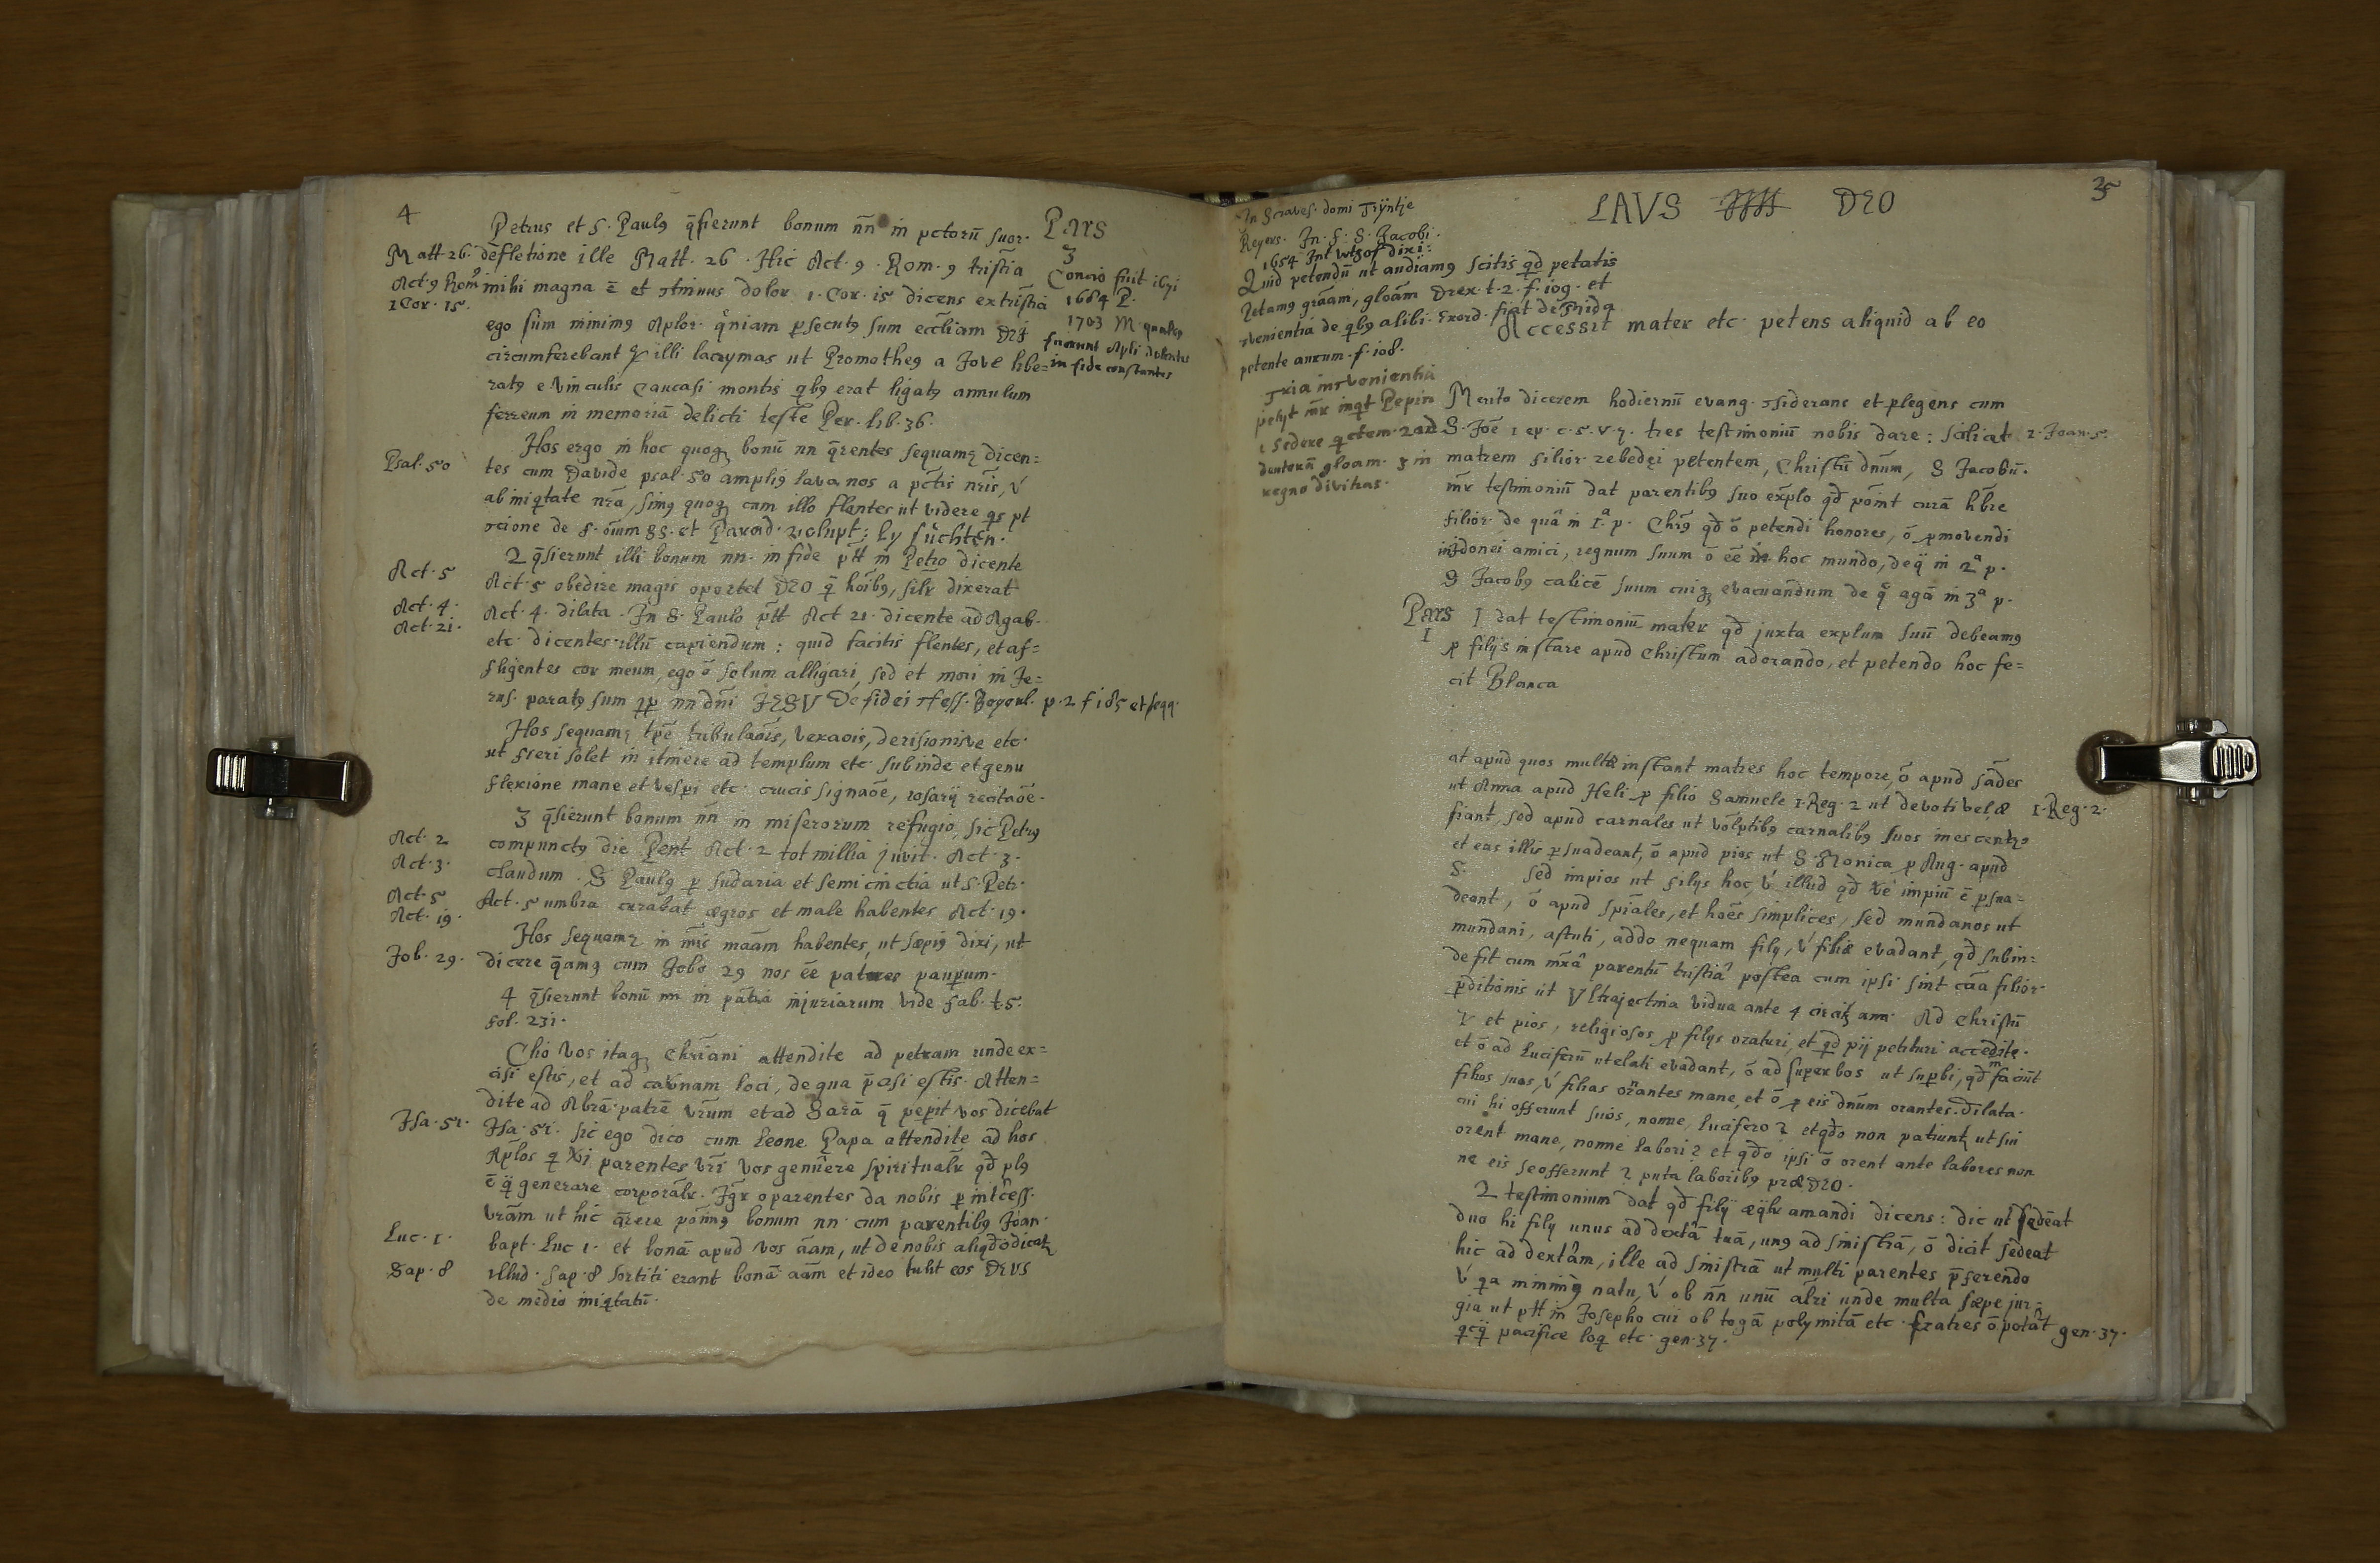 4
Petrus et S. Paulꝰ q̄sierunt bonum nn̄ in pctorū suor.
Pars
3
Matt 26. defletione ille Matt. 26. Hic Act. 9. Rom. 9 tristia
Concio fuit
1684 P.
1703 M.
Act. 9 Rom 9 mihi magna ē et dolor 1. Cor. 15 dicens ex tristia
1 Cor. 15.
ego sum minimꝰ Aplor. qniam psecutꝰ sum eccliam
furunt Apli
in fide constantes
circumferebant illi lacrymas ut Promotheꝰ a Jove libe=
ratꝰ e vinculis Caucasi montis qbꝰ erat ligatꝰ annulum
ferreum in memoriā delicti teste Per. lib. 36.
Hos ergo in hoc quoqꝫ bonū nn q̄rentes sequamꝰ dicen=
Psal. 50
tes cum Davide psal. 50 ampliꝰ lava nos a pctis nris, v
ab iniqtate nrā, simꝰ quoqꝫ cum illo flentes ut videre pt
de f. oīum SS. et Parad. volupt: by suchten.
2 q̄sierunt illi bonum nn. in fide ptt in Petro dicente
Act. 5
Act. 5 obedire magis oportet DEO q̄ hoībꝰ, silr dixerat
Act. 4.
Act. 4. dilata. In S. Paulo ptt Act 21. dicente ad Agab.
Act. 21.
etc. dicentes illū capiendum: quid facitis flentes, et af=
fligentes cor meum, ego ō solum alligari, sed et mori in Je=
rus. paratꝰ sum pp nn dnī JESU De fidei p. 2 f 185 et seqq.
Hos sequamꝰ tpē tribulaōis, vexaōis, derisionisve etc.
ut fieri solet in itinere ad templum etc. subinde et genu
flexione mane et vespi etc. crucis signaōe, rosarij recitaōe.
3 q̄sierunt bonum nn̄ in miserorum refugio, sic Petrꝰ
Act. 2
compunctꝰ die Pent Act. 2 tot millia juvit. Act. 3.
Act. 3.
claudum. S Paulꝰ p sudaria et semicinctia ut S. Petr.
Act. 5
Act. 5 umbra curabat ægros et male habentes Act. 19.
Act. 19.
Hos sequamꝰ in maām habentes, ut sæpiꝰ dixi, ut
Job. 29.
dicere q̄amꝰ cum Jobo 29 nos ēe patres paupum.
4 q̄sierunt bonū nn in injuriarum vide Fab. t. 5.
fol. 231.
Chō vos itaqꝫ Chriani attendite ad petram unde ex=
cisi estis, et ad cavnam loci, de qua p̄cisi estis. Atten=
dite ad Abrā. patrē vrūm et ad Sarā q̄ pepit vos dicebat
Isa. 51.
Isa. 51. sic ego dico cum Leone Papa attendite ad hos
Aplos q parentes vrī vos genuere spiritualr qd plꝰ
ē q̄ generare corporalr. Igr o parentes da nobis p intcess.
vrām ut hic q̄rere pōīmꝰ bonum nn. cum parentibꝰ Joan
Luc. 1.
bapt. Luc 1. et bonā apud vos aām, ut de nobis aliqdo dicat
Sap. 8
illud. Sap. 8 sortiti erant bonā aām et ideo tulit eos DEVS
de medio iniqtatū.
25
LAVS DEO
domi Tijntje
Reyers. In f. S. Jacobi.
1654 dixi:
Quid petendū ut audiamꝰ scitis qd petatis
Petamꝰ grāam, gloām Drex. t. 2. f. 109. et
de qbꝰ alibi. Exord. fiat de Mida
petente aurum. f. 108.
Accessit mater etc. petens aliquid ab eo
Tria
petijt mr inqt Pepin
1 sedere 2 ad
dexterā gloam. 3 in
regno divitias.
Merito dicerem hodiernū evang. siderans et plegens cum
S. Joē 1 ep. c. 5. v. 7. tres testimoniū nobis dare: scilicet
1. Joan. 5.
matrem filior zebedęi petentem, Christū dnūm, S Jacobū.
mr testimoniū dat parentibꝰ suo explo qd pōīnt curā hbre
filior de quâ in 1ª p. Chrꝰ qd ō petendi honores, ō pmovendi
inidonei amici, regnum suum ō ēe in hoc mundo, de q̄ in 2ª p.
S Jacobꝰ calicē suum cuiqꝫ evacuandum de q agā in 3ª p.
Pars
1
I dat testimoniū mater qd juxta explum suū debeamꝰ
p filijs instare apud Christum adorando, et petendo hoc fe=
cit Blanca
at apud quos multæ instant matres hoc tempore, ō apud sādes
ut Anna apud Heli p filio Samuele 1. Reg. 2 ut devoti velæ
1. Reg. 2.
fiant, sed apud carnales ut volptibꝰ carnalibꝰ suos inescent
et eas illis psuadeant, ō apud pios ut S Monica p Aug. apud
S. sed impios ut filijs hoc v illud qd ve impiū ē psua=
deant, ō apud spiales, et hoēs simplices, sed mundanos ut
mundani, astuti, addo nequam filij, v filiæ evadant, qd subin=
de fit cum parentū tristiâ postea cum ipsi sint cāa filior
pditionis ut Vltrajectina vidua ante 4 ann. Ad Christū
v et pios, religiosos p filijs oraturi, et qd pij petituri accedite.
et ō ad Luciferū ut elati evadant, ō ad superbos ut supbi, qd faciūt
filios suos, v filias ornantes mane, et ō p eis dnūm orantes. Dilata.
cui hi offerunt suos, nonne lucifero? et qdo non patiuntꝫ ut sui
orent mane, nonne labori? et qdo ipsi ō orent ante labores non
ne eis se offerunt? puta laboribꝰ præ DEO.
2 testimonium dat qd filij æqlr amandi dicens: dic ut sedeat
duo hi filij unus ad dextā tuā, unꝰ ad sinistrā, ō dicit sedeat
hic ad dextām, ille ad sinistrā ut multi parentes p̄ferendo
v qa minimꝰ natu, v ob nn̄ unū alri unde multa sæpe jur=
gia ut ptt in Josepho cui ob togā polymitā etc. fratres ō potāt
gen. 37.
pacifice loq etc. gen. 37.